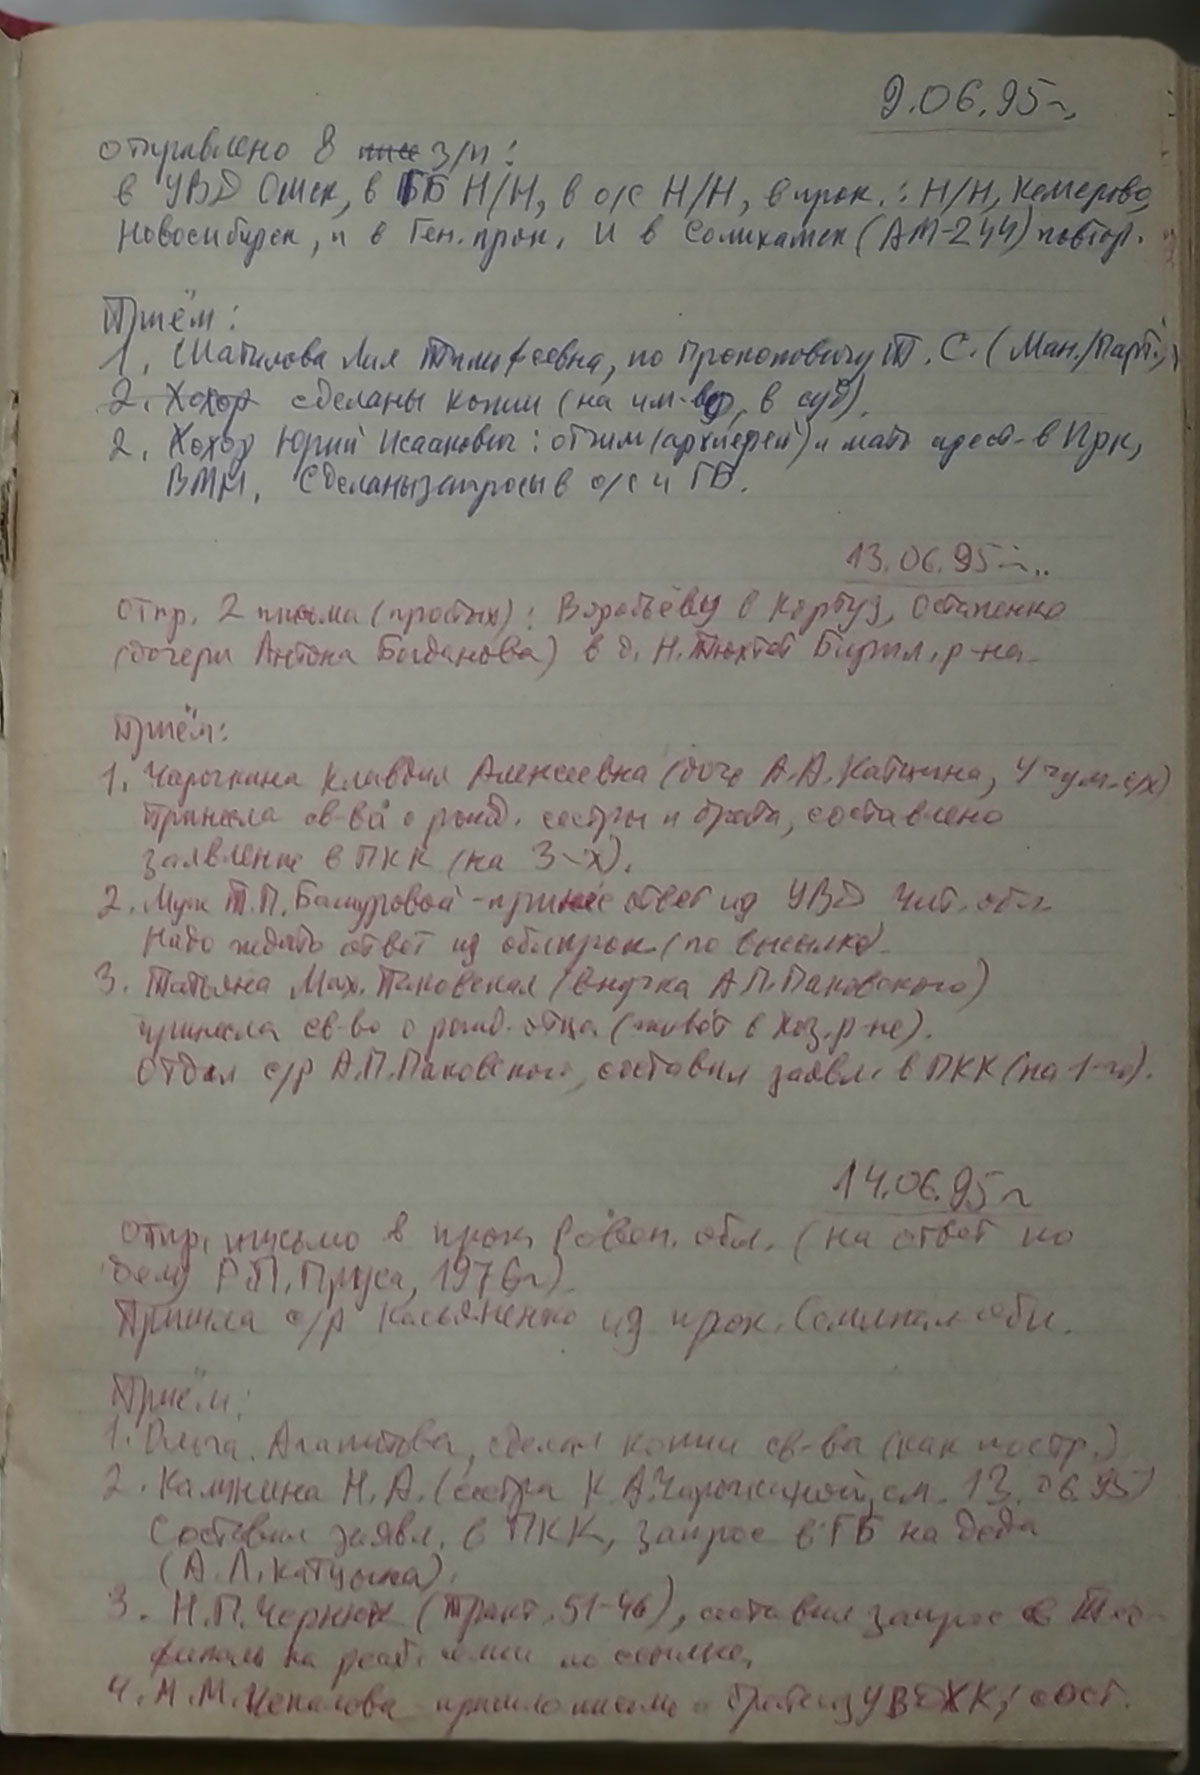 9.06.95г.
отправлено 8 з/п:
в УВД Омск, в ГБ Н/Н, в о/с Н/Н, в прок.: Н/Н, Кемерово,
Новосибирск, и в Ген. прок. И в Соликамск (АМ-244) повтор.
Приём:
1. Шатилова Лия Тимофеевна, по Прокоповичу Т. С. (Ман./Парт.)
2. Хохор сделаны копии (на им-во, в суд).
2. Хохор Юрий Исаакович: отчим (архиерей) и мать арест. в Крк,
ВМН. Сделаны запросы в о/с и ГБ.
13.06.95г.
Отпр. 2 письма (простых): Воробьёву в Картуз, Остапенко
(дочери Антона Богданова) в д. Н. Тюхтет Бирил. р-на.
Приём:
1. Чарочкина Клавдия Алексеевна (дочь А.А. Катцына,
принесла св-ва о рожд. сестры и брата, составлено
заявление в ПКК (на 3-х).
2. Муж Т.П. Башуровой - принёс ответ из УВД Чит. обл.
Надо ждать ответ из облпрок. (по высылке).
3. Татьяна Мих. Паковская (внучка А.П. Паковского)
принесла св-во о рожд. отца (живёт в Каз. р-не).
Отдал с/р А.П. Паковского, составил заявл. в ПКК (на 1-го).
14.06.95г
Отпр. письмо в прок. Ровен. обл. (на ответ по
делу Р.П. Пруса, 1976г).
Пришла с/р Касьяненко из прок. Семипал. обл.
Приём:
1. Ольга Агапитова, сделал копии св-ва (как постр.)
2. Калинина Н.А. (сестра К.А. Чарочкиной, см. 13.06.95)
Составил заявл. в ПКК, запрос в ГБ на деда
(А.Л. Катцына).
3. Н.П. Чернюк (Тракт. 51-46), составил запрос в
на реаб. семьи по ссылке.
4. Н.М. пришло письмо о брате из УВД ЖК, сост.